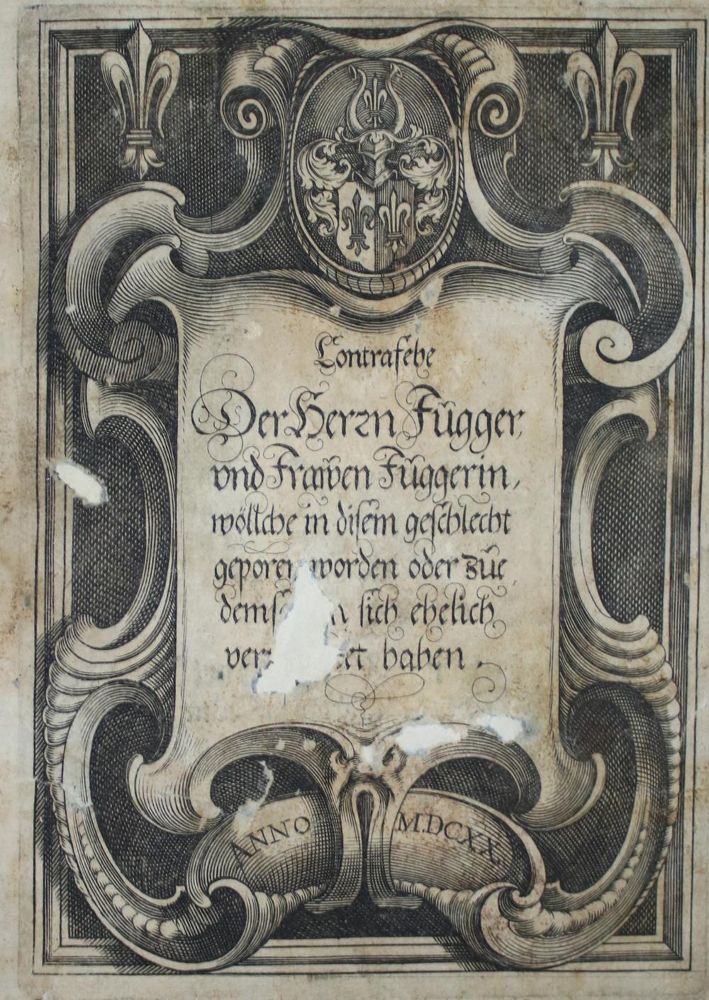 Contrafehe
Der Herzn Fŭgger,
vnd Frawen Fŭggerin,
wöllche in disem geschlecht
geporen worden oder zŭe
sich ehelich
haben.
ANNO MDCXX.